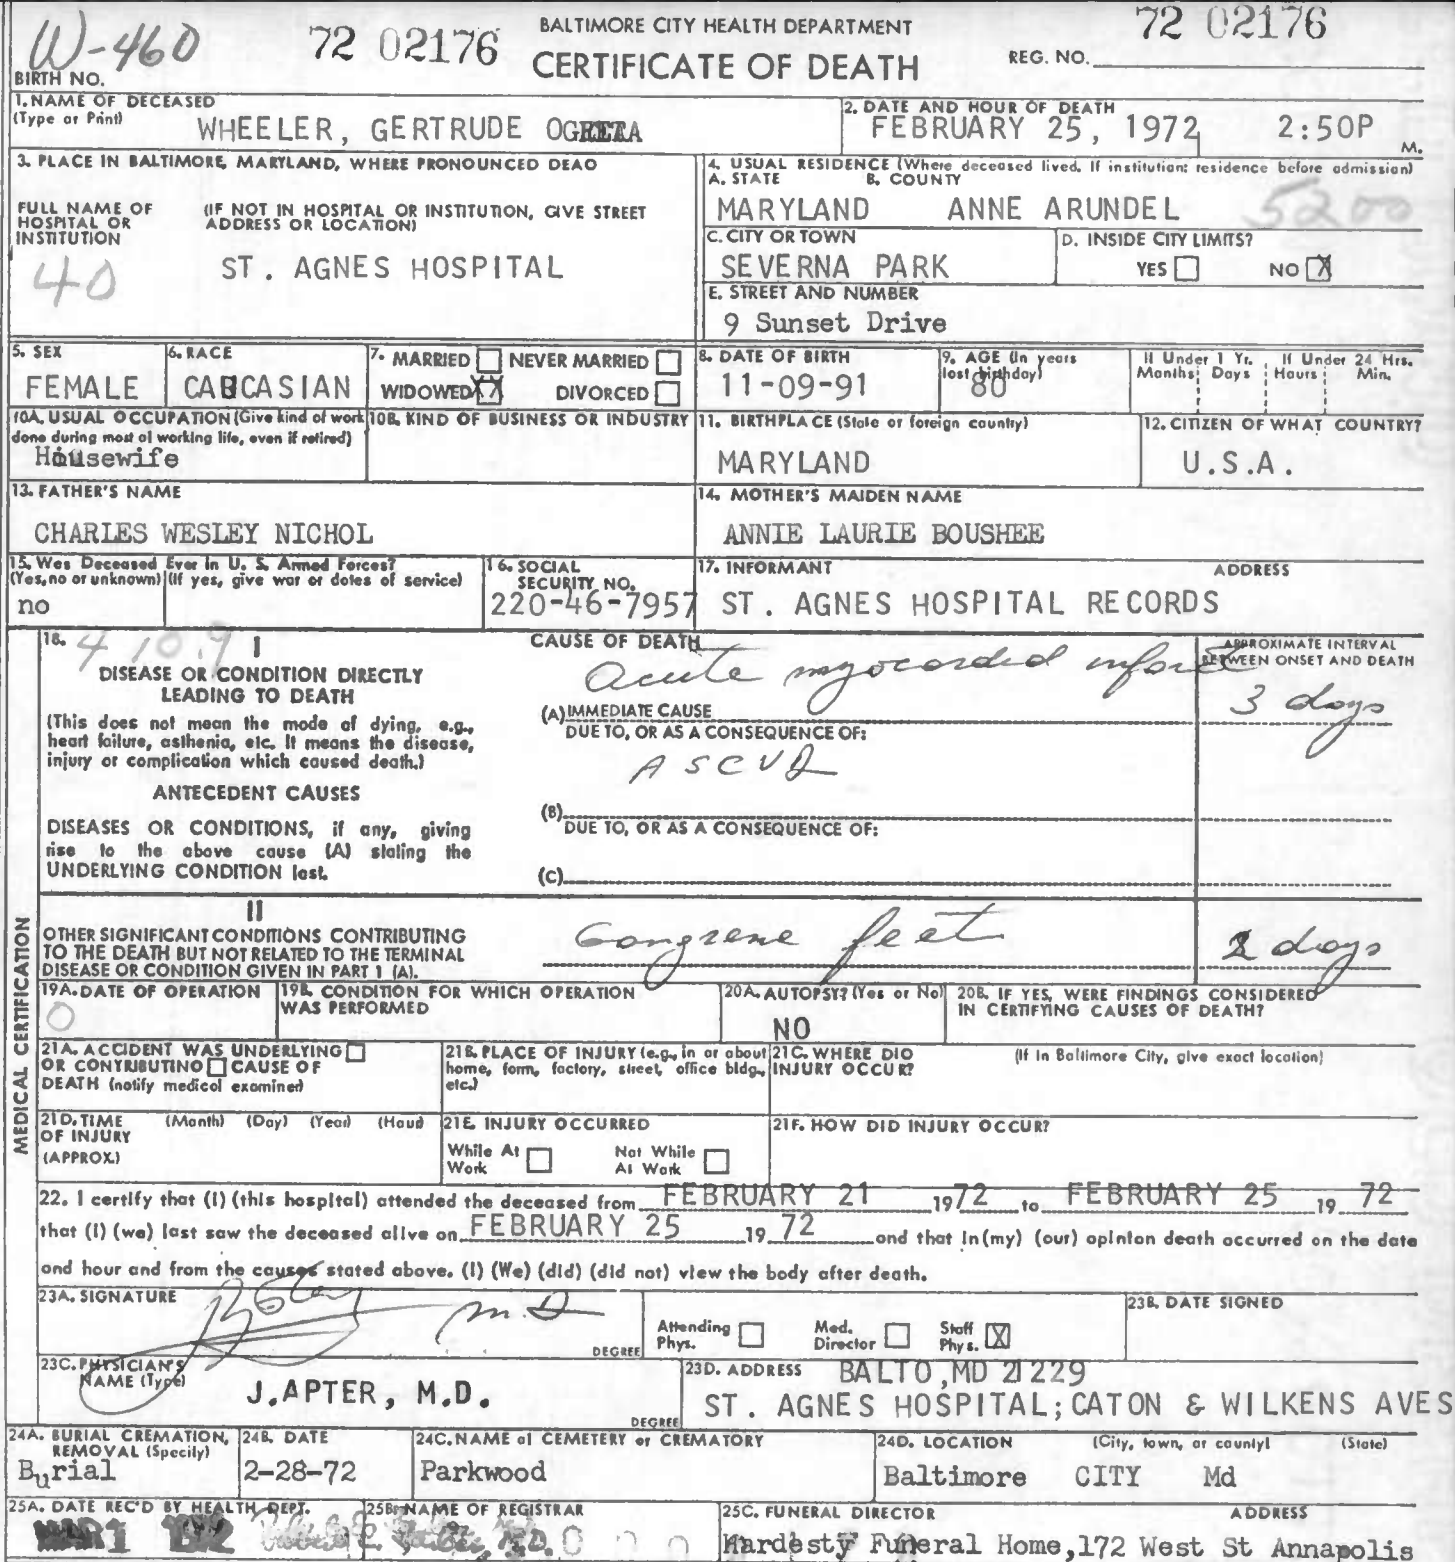 W-460 72 02176 BALTIMORE CITY HEALTH DEPARTMENT 72 02176
BIRTH NO. CERTIFICATE OF DEATH REG. NO.
1. NAME OF DECEASED
(Type or Print) WHEELER, GERTRUDE
2. DATE AND HOUR OF DEATH
FEBRUARY 25, 1972 2:50P M.
3. PLACE IN BALTIMORE, MARYLAND, WHERE PRONOUNCED DEAD
FULL NAME OF HOSPITAL OR INSTITUTION
(IF NOT IN HOSPITAL OR INSTITUTION, GIVE STREET
ADDRESS OR LOCATION)
40 ST. AGNES HOSPITAL
4. USUAL RESIDENCE (Where deceased lived. If institution: residence before admission)
A. STATE B. COUNTY
MARYLAND ANNE ARUNDEL 5200
C. CITY OR TOWN
SEVERNA PARK
D. INSIDE CITY LIMITS?
YES NO X
E. STREET AND NUMBER
9 Sunset Drive
5. SEX
FEMALE
6. RACE
CAUCASIAN
7. MARRIED NEVER MARRIED
WIDOWED XX DIVORCED
8. DATE OF BIRTH
11-09-91
9. AGE (In years
last birthday)
80
If Under 1 Yr. If Under 24 Hrs.
Months Days Hours Min.
10A. USUAL OCCUPATION (Give kind of work
done during most of working life, even if retired)
Housewife
10B. KIND OF BUSINESS OR INDUSTRY
11. BIRTHPLACE (State or foreign country)
MARYLAND
12. CITIZEN OF WHAT COUNTRY?
U.S.A.
13. FATHER'S NAME
CHARLES WESLEY NICHOL
14. MOTHER'S MAIDEN NAME
ANNIE LAURIE BOUSHEE
15. Was Deceased Ever in U. S. Armed Forces?
(Yes, no or unknown) (If yes, give war or dates of service)
no
16. SOCIAL
SECURITY NO.
220-46-7957
17. INFORMANT ADDRESS
ST. AGNES HOSPITAL RECORDS
MEDICAL CERTIFICATION
18. 410.9 I
DISEASE OR CONDITION DIRECTLY
LEADING TO DEATH
(This does not mean the mode of dying, e.g.,
heart failure, asthenia, etc. It means the disease,
injury or complication which caused death.)
ANTECEDENT CAUSES
DISEASES OR CONDITIONS, if any, giving
rise to the above cause (A) stating the
UNDERLYING CONDITION last.
CAUSE OF DEATH
Acute myocardial infarct
(A) IMMEDIATE CAUSE
DUE TO, OR AS A CONSEQUENCE OF:
ASCVD
(B)
DUE TO, OR AS A CONSEQUENCE OF:
(C)
APPROXIMATE INTERVAL
BETWEEN ONSET AND DEATH
3 days
II
OTHER SIGNIFICANT CONDITIONS CONTRIBUTING
TO THE DEATH BUT NOT RELATED TO THE TERMINAL
DISEASE OR CONDITION GIVEN IN PART 1 (A).
Gangrene feet days
19A. DATE OF OPERATION
0
19B. CONDITION FOR WHICH OPERATION
WAS PERFORMED
20A. AUTOPSY? (Yes or No)
NO
20B. IF YES, WERE FINDINGS CONSIDERED
IN CERTIFYING CAUSES OF DEATH?
21A. ACCIDENT WAS UNDERLYING
OR CONTRIBUTING CAUSE OF
DEATH (notify medical examiner)
21B. PLACE OF INJURY (e.g., in or about
home, farm, factory, street, office bldg.,
etc.)
21C. WHERE DID
INJURY OCCUR?
(If in Baltimore City, give exact location)
21D. TIME (Month) (Day) (Year) (Hour)
OF INJURY
(APPROX.)
21E. INJURY OCCURRED
While At Work Not While At Work
21F. HOW DID INJURY OCCUR?
22. I certify that (I) (this hospital) attended the deceased from FEBRUARY 21 1972 to FEBRUARY 25 19 72
that (I) (we) last saw the deceased alive on FEBRUARY 25 19 72 and that in (my) (our) opinion death occurred on the date
and hour and from the causes stated above. (I) (We) (did) (did not) view the body after death.
23A. SIGNATURE
M.D. DEGREE
Attending Phys. Med. Director Staff Phys. X
23B. DATE SIGNED
23C. PHYSICIAN'S
NAME (Type)
J. APTER, M.D. DEGREE
23D. ADDRESS BALTO, MD 21229
ST. AGNES HOSPITAL; CATON & WILKENS AVES
24A. BURIAL CREMATION,
REMOVAL (Specify)
Burial
24B. DATE
2-28-72
24C. NAME of CEMETERY or CREMATORY
Parkwood
24D. LOCATION (City, town, or county) (State)
Baltimore CITY Md
25A. DATE REC'D BY HEALTH DEPT.
MAR 1 1972
25B. NAME OF REGISTRAR
25C. FUNERAL DIRECTOR ADDRESS
Hardesty Funeral Home, 172 West St Annapolis